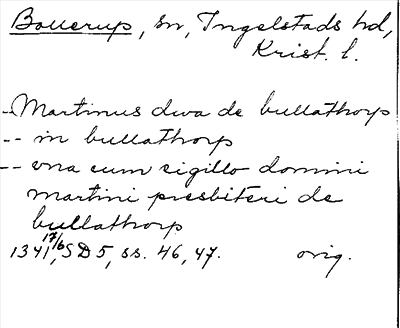 Bollerup, sn, Ingelstads hd,
Krist. l.
-- Martinus diva de bullathorp
-- in bullathorp
-- vna cum sigillo domini
martini presbiteri de
bullathorp
1341 17/6, SD 5, ss. 46, 47. orig.